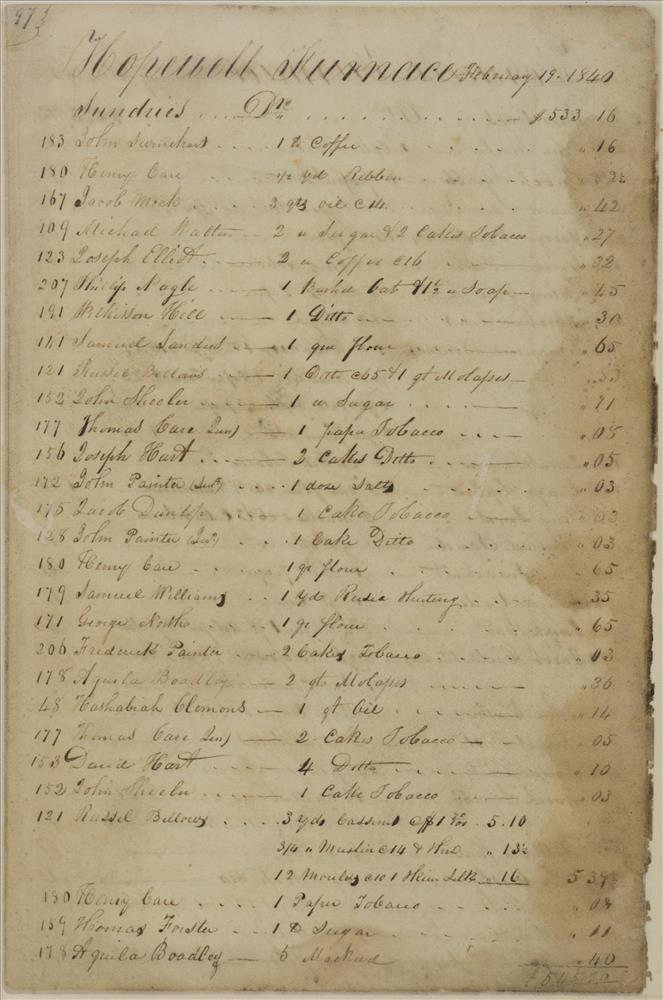 97
Hopewell Furnace February 19. 1840
Sundries .... Drs .......... $533 16
183 John Turnehart .... 1 lb Coffee .... " 16
180 Henry Care .... 1/2 yd Ribbon .... "
167 Jacob Mock .... 3 gts Oil c14 .... " 42
109 Michael Walters — 2 " Sugar & 2 Cakes Tobacco " 27
123 Joseph Elliot .... 2 " Coffee c16 .... " 32
207 Phillip Nagle .... 1 Bushel & 1½ " Soap — " 45
191 Wilkisson Hill .... 1 Ditto .... " 30
141 Samuel Sands .... 1 qr flour .... " 65
121 Russel Bellows .... 1 Ditto c65 & 1 gt Molasses —
152 John Sheeler .... 1 " Sugar .... " 11
177 Thomas Care Junr — 1 paper Tobacco .... " 08
156 Joseph Hart .... 2 Cakes Ditto .... " 05
172 John Painter (Senr) .... 1 dose Salts .... " 03
175 Jacob Dunlap .... 1 Cake Tobacco — " 03
128 John Painter (Junr) .... 1 Cake Ditto .... " 03
180 Henry Care .... 1 qr flour .... " 65
179 Samuel Williams .. 1 yd Rusia Shirting .... " 35
171 George North .... 1 qr flour .... " 65
206 Frederick Painter .. 2 Cakes Tobacco .... " 03
178 Aquila Boadley — 2 gts Molasses .... " 36
48 Hashabiah Clemons — 1 gt Oil .... " 14
177 Thomas Care Junr — 2 Cakes Tobacco — " 05
153 David Hart .... 4 Ditto .... " 10
152 John Sheeler .... 1 Cake Tobacco .... " 03
121 Russel Bellows .... 3 yds Cassinet @ $1 70/100 . 5.10
3/4 " Muslin c14 & thrd " 13½
12 Moulds c10 1 Skein Silk " 16 5 39½
180 Henry Care .... 1 Paper Tobacco .... " 08
159 Thomas Forster .. 1 lb Sugar .... " 11
178 Aquila Boadley — 5 Mackrel " 40